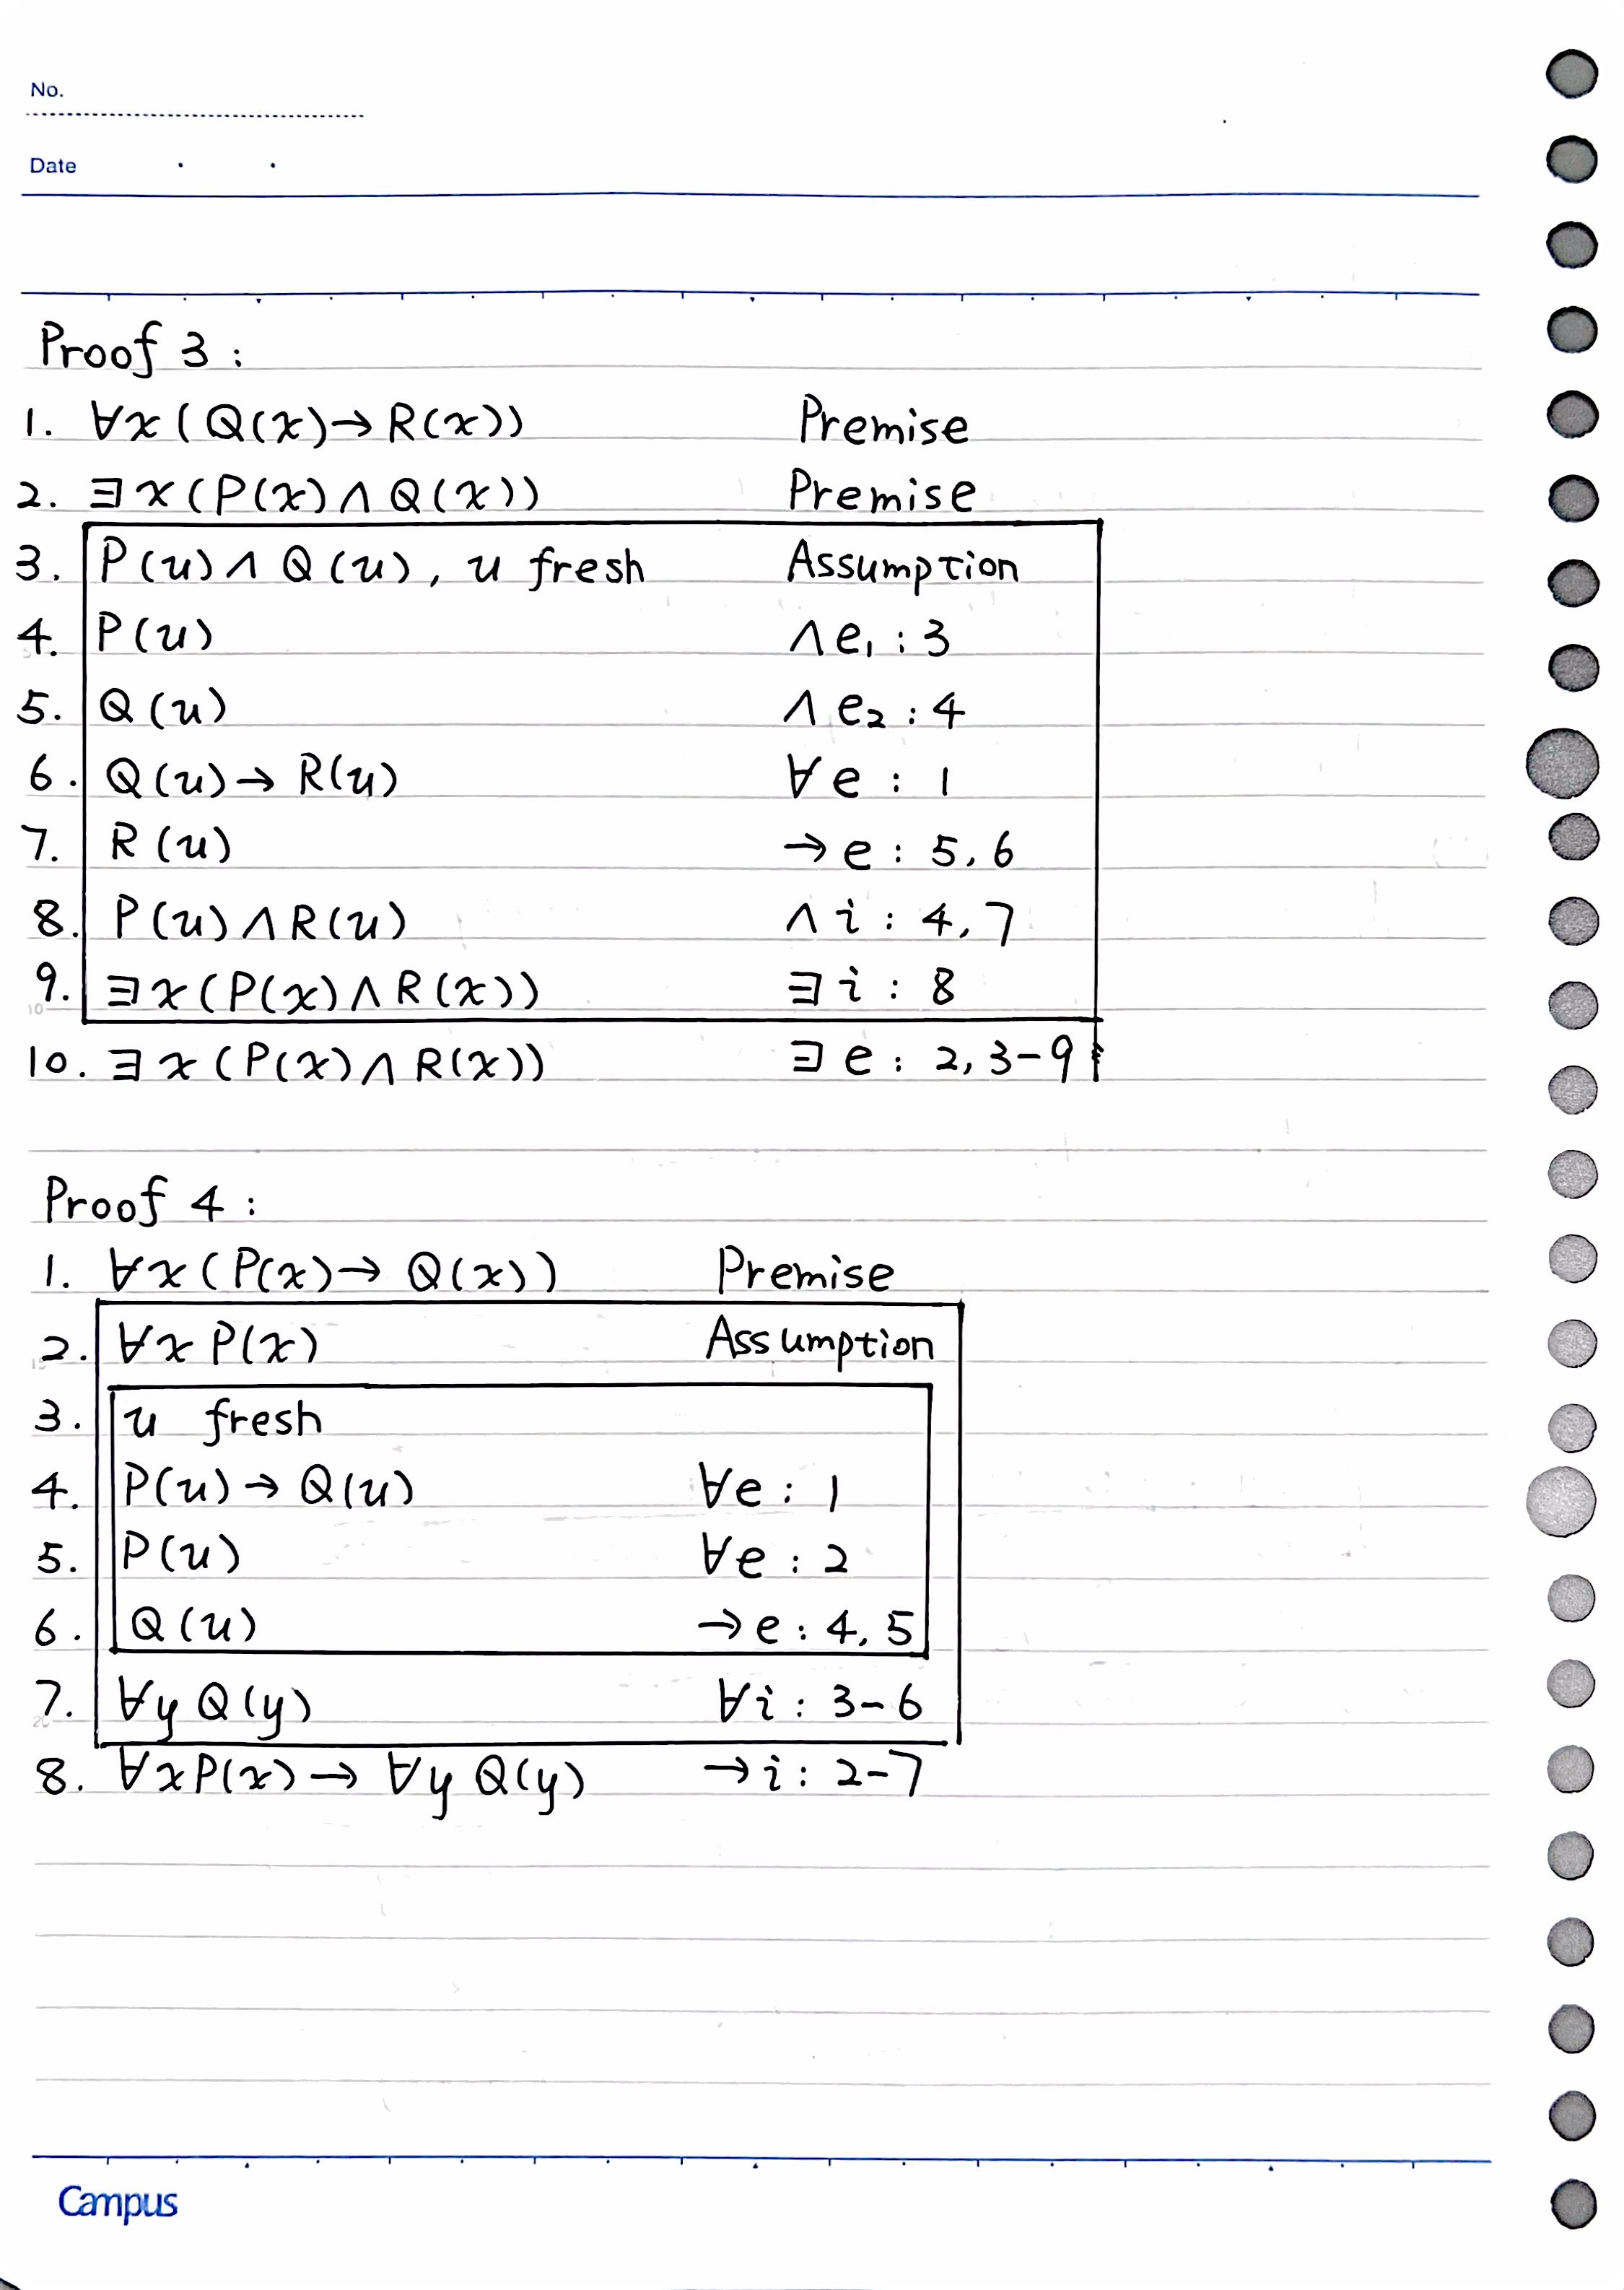 No.
Date
Proof 3 :
1. ∀x(Q(x)→R(x)) Premise
2. ∃x(P(x)∧Q(x)) Premise
3. P(u)∧Q(u), u fresh Assumption
4. P(u) ∧e₁ : 3
5. Q(u) ∧e₂ : 4
6. Q(u)→R(u) ∀e : 1
7. R(u) →e : 5,6
8. P(u)∧R(u) ∧i : 4,7
9. ∃x(P(x)∧R(x)) ∃i : 8
10. ∃x(P(x)∧R(x)) ∃e : 2, 3-9
Proof 4 :
1. ∀x(P(x)→Q(x)) Premise
2. ∀xP(x) Assumption
3. u fresh
4. P(u)→Q(u) ∀e : 1
5. P(u) ∀e : 2
6. Q(u) →e : 4,5
7. ∀yQ(y) ∀i : 3-6
8. ∀xP(x)→∀yQ(y) →i : 2-7
Campus